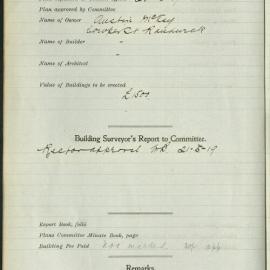 Plan approved by Committee
Name of Owner Austin McKay
Cowper St Randwick
Name of Builder "
Name of Architect "
Value of Buildings to be erected
£500
Building Surveyor's Report to Committee.
For approval 21-8-19
Report Book, folio
Plans Committee Minute Book, page
Building Fee Paid not marked
Remarks.